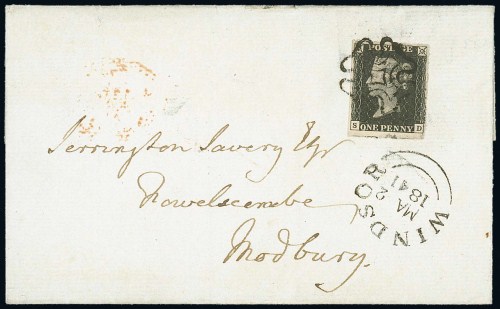 POSTAGE
S D
ONE PENNY
Servington Savery Esqr
Fowelscombe
Modbury.
WINDSOR
MA 2
1841